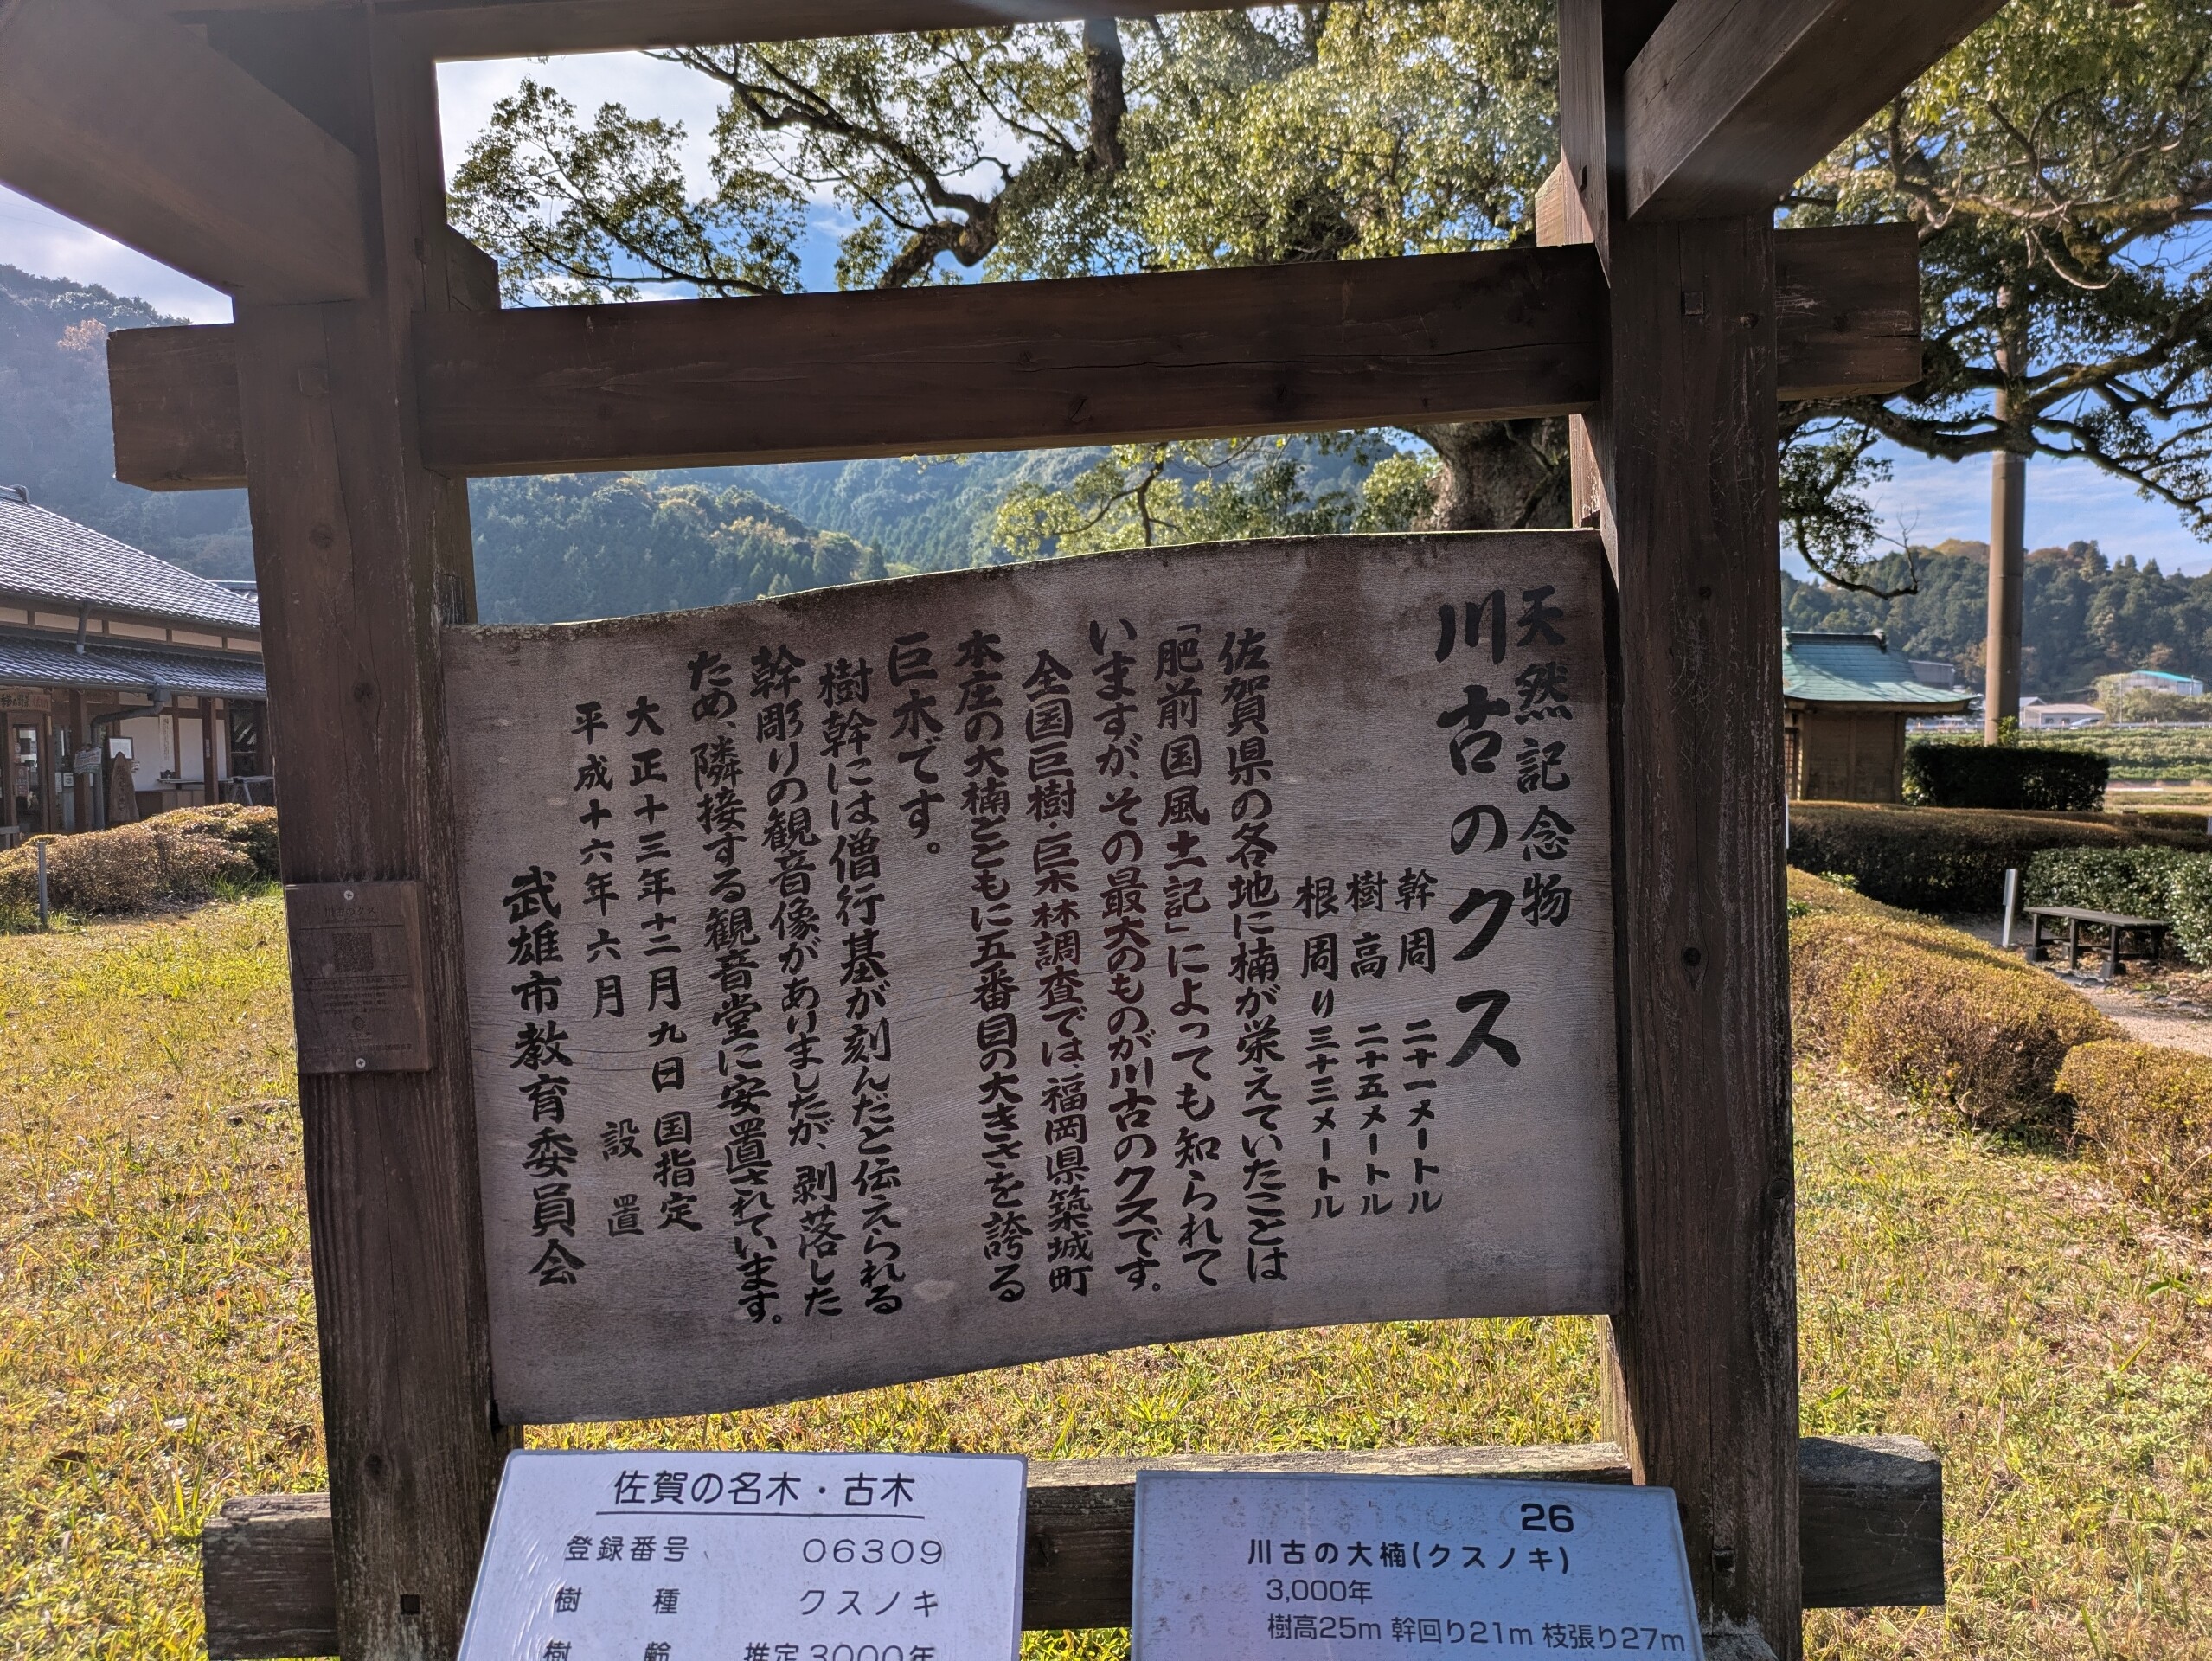 天然記念物
川古のクス
幹周 二十一メートル
樹高 二十五メートル
根周り三十三メートル
佐賀県の各地に楠が栄えていたことは
「肥前国風土記」によっても知られて
いますが、その最大のものが川古のクスです。
全国巨樹・巨木林調査では、福岡県築城町
本庄の大楠とともに五番目の大きさを誇る
巨木です。
樹幹には僧行基が刻んだと伝えられる
幹彫りの観音像がありましたが、剥落した
ため、隣接する観音堂に安置されています。
大正十三年十二月九日 国指定
平成十六年六月 設置
武雄市教育委員会
川古のクス
佐賀の名木・古木
登録番号 06309
樹種 クスノキ
樹齢 推定3000年
26
川古の大楠(クスノキ)
3,000年
樹高25m 幹回り21m 枝張り27m